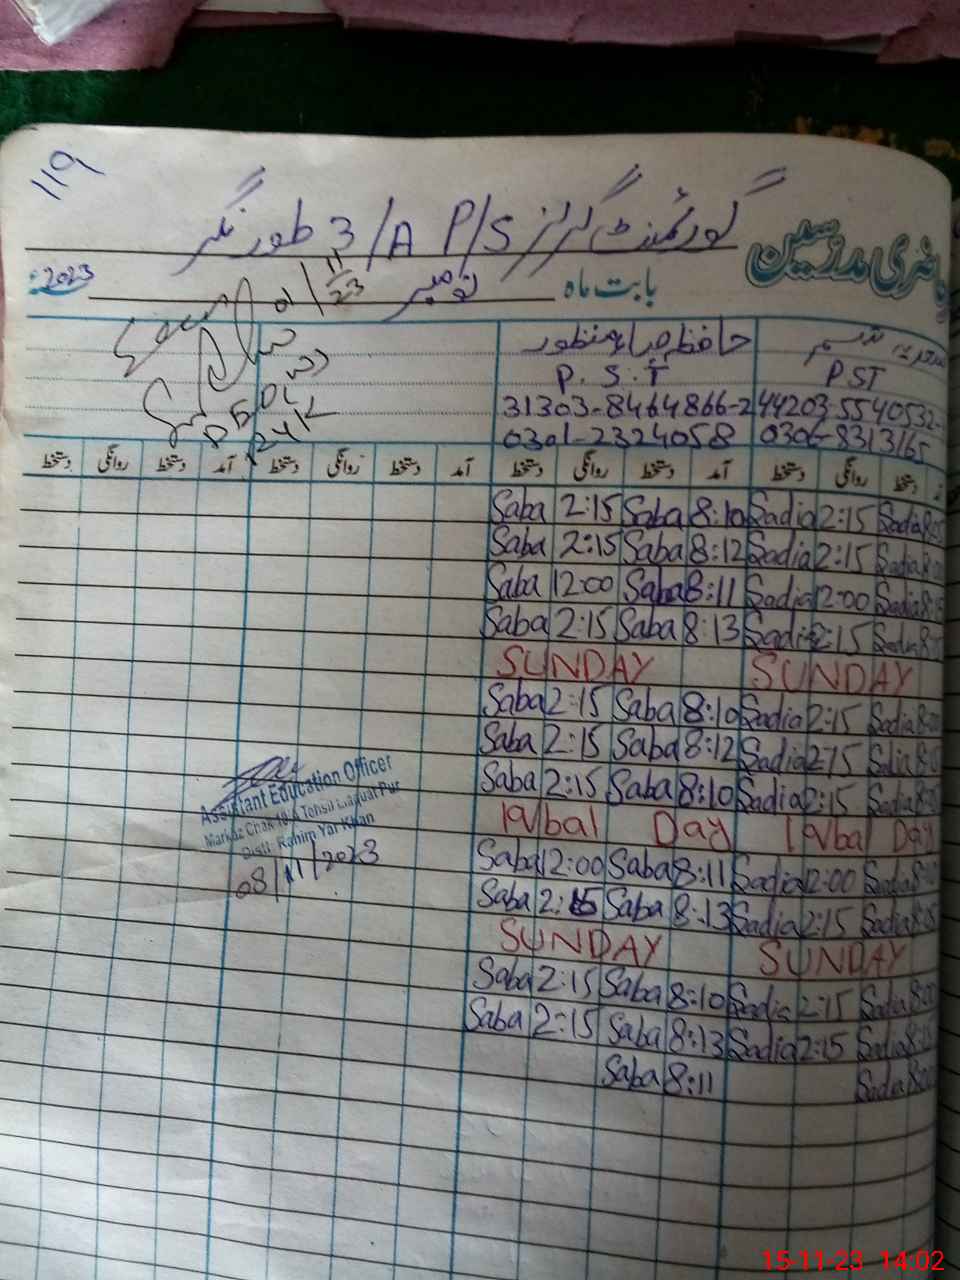 119
گورنمنٹ گرلز P/S 3/A طور نگر
حاضری مدرسین
بابت ماہ نومبر 2023ء
01/11/23
سعدیہ تبسم
حافظہ صباء منظور
PST
P.S.T
31303-8464866-2
44203-5540532-
0301-2324058
0306-8313165
آمد دستخط روانگی دستخط آمد دستخط روانگی دستخط آمد دستخط روانگی دستخط آمد دستخط روانگی دستخط
Saba 2:15 Saba 8:10 Sadia 2:15 Sadia
Saba 2:15 Saba 8:12 Sadia 2:15 Sadia
Saba 12:00 Saba 8:11 Sadia 12:00 Sadia
Saba 2:15 Saba 8:13 Sadia 2:15 Sadia
SUNDAY SUNDAY
Saba 2:15 Saba 8:10 Sadia 2:15 Sadia 8:00
Saba 2:15 Saba 8:12 Sadia 2:15 Sadia 8:05
Saba 2:15 Saba 8:10 Sadia 2:15 Sadia
Iqbal Day Iqbal Day
Saba 12:00 Saba 8:11 Sadia 12:00 Sadia
Saba 2:15 Saba 8:13 Sadia 2:15 Sadia 8:05
SUNDAY SUNDAY
Saba 2:15 Saba 8:10 Sadia 2:15 Sadia 8:00
Saba 2:15 Saba 8:13 Sadia 2:15 Sadia 8:15
Saba 8:11 Sadia 8:00
Assistant Education Officer
Markaz Chak 18-A Tehsil Liaquat Pur
Distt: Rahim Yar Khan
08/11/2023
15-11-23 14:02